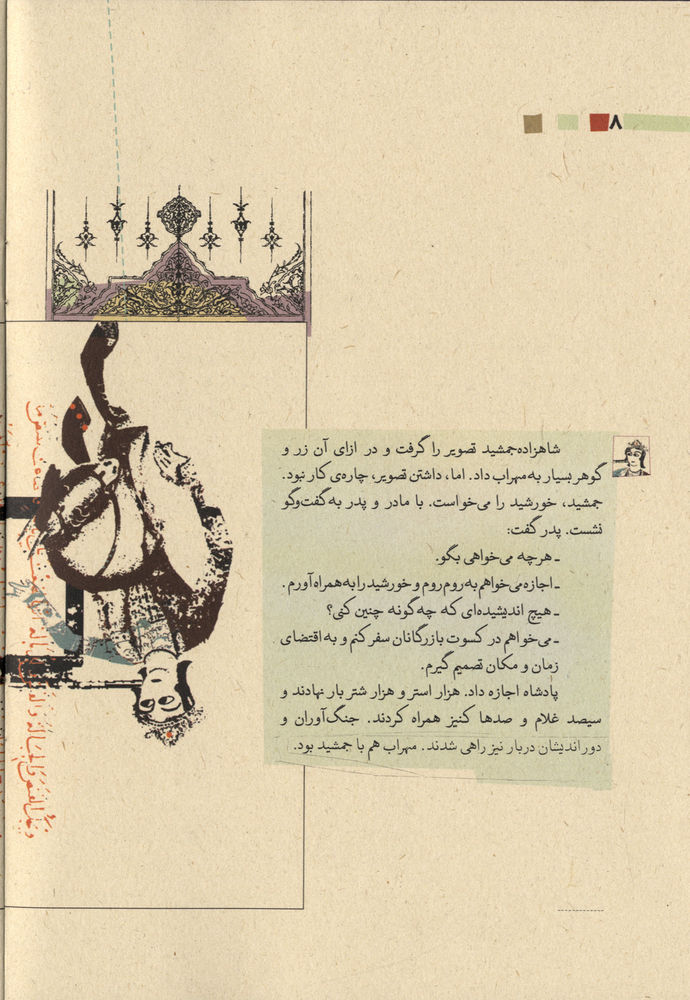 ۸
شاهزاده‌جمشید تصویر را گرفت و در ازای آن زر و
گوهر بسیار به‌مهراب داد. اما، داشتن تصویر، چاره‌ی کار نبود.
جمشید، خورشید را می‌خواست. با مادر و پدر به‌گفت‌وگو
نشست. پدر گفت:
ـ هرچه می‌خواهی بگو.
ـ اجازه می‌خواهم به‌روم روم و خورشید را به‌همراه آورم.
ـ هیچ اندیشیده‌ای که چه‌گونه چنین کنی؟
ـ می‌خواهم در کسوت بازرگانان سفر کنم و به اقتضای
زمان و مکان تصمیم گیرم.
پادشاه اجازه داد. هزار استر و هزار شتر بار نهادند و
سیصد غلام و صدها کنیز همراه کردند. جنگ‌آوران و
دوراندیشان دربار نیز راهی شدند. مهراب هم با جمشید بود.